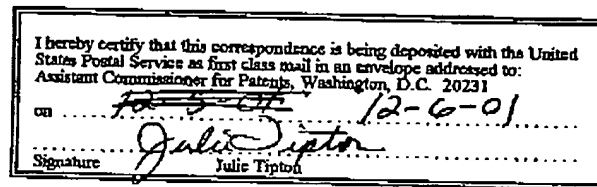 I hereby certify that this correspondence is being deposited with the United
States Postal Service as first class mail in an envelope addressed to:
Assistant Commissioner for Patents, Washington, D.C. 20231
on 12-5-01 12-6-01
Julie Tipton
Signature Julie Tipton